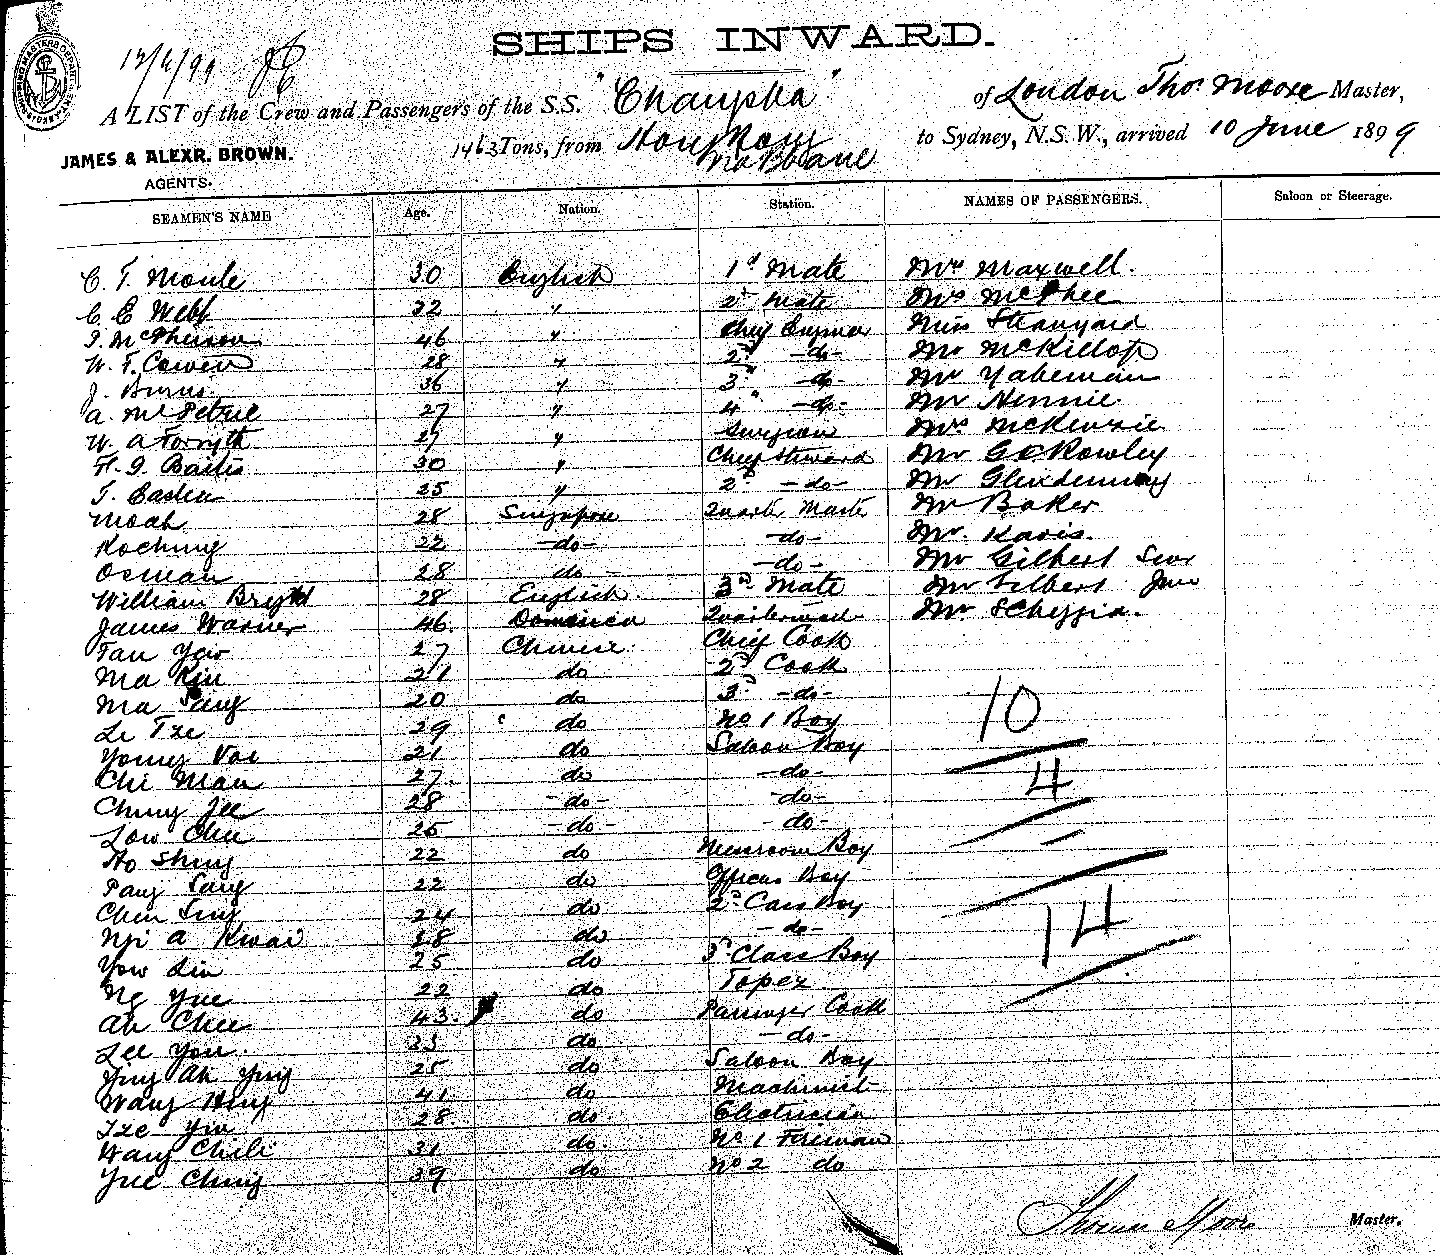 SHIPS INWARD.
12/6/99
A LIST of the Crew and Passengers of the S.S. "Changsha" of London Thos. Moore Master,
1463 Tons, from Hong Kong to Sydney, N.S.W., arrived 10 June 1899
JAMES & ALEXR. BROWN.
AGENTS.
SEAMEN'S NAME Age. Nation. Station. NAMES OF PASSENGERS. Saloon or Steerage.
C. T. Moule 30 English 1st Mate Mrs Maxwell.
C E Webb 32 " 2d Mate Mrs McPhee
McPherson 46 " Chief Engineer Miss Stanyard
W. T. Cowen 28 " 2d -do- Mr McKillop
J. Burns 36 " 3d -do- Mr Yabeman
A. McPetrie 27 " 4" -do- Mr Hennie.
W. A Forsyth 27 " Surgeon Mrs McKenzie
30 " Chief Steward Mr Rowley
25 " 2d -do- Mr Glendenning
Moah 28 Singapore Quarter Master Mr Baker
Koching 22 -do- -do- Mr. Kavis.
Osman 28 do- -do- Mr Gilbert Senr
William 28 English 3rd Mate Mr Gilbert Junr
James Warner 46 Dominica Mr.
Tan Yew 27 Chinese Chief Cook
Ma Kin 21 do 2d Cook
Ma Sang 20 do 3d -do-
Le Tze 29 do No. 1 Boy
Young 21 do Saloon Boy
Chi Man 27 do -do-
Chung Jee 28 -do- -do-
Low Chee 25 -do- -do-
Ho Shing 22 do Messroom Boy
Pang Sang 22 do Officers Boy
Chen Sing 24 do 2d Class Boy
Ngi A Kwai 28 do -do-
Yow Lin 25 do 3d Class Boy
Ng Yue 22 do Topez
Ah Chee 43. do Passenger Cook
Lee You. 23 do -do-
Ying Ah Ying 25 do Saloon Boy
Wang Hing 41 do Machinist
Tze Yin 28. do Electrician
Wang Cheli 31 do. No. 1 Fireman
Yue Ching 39 do No 2 do
10
4
14
Thomas Moore Master.